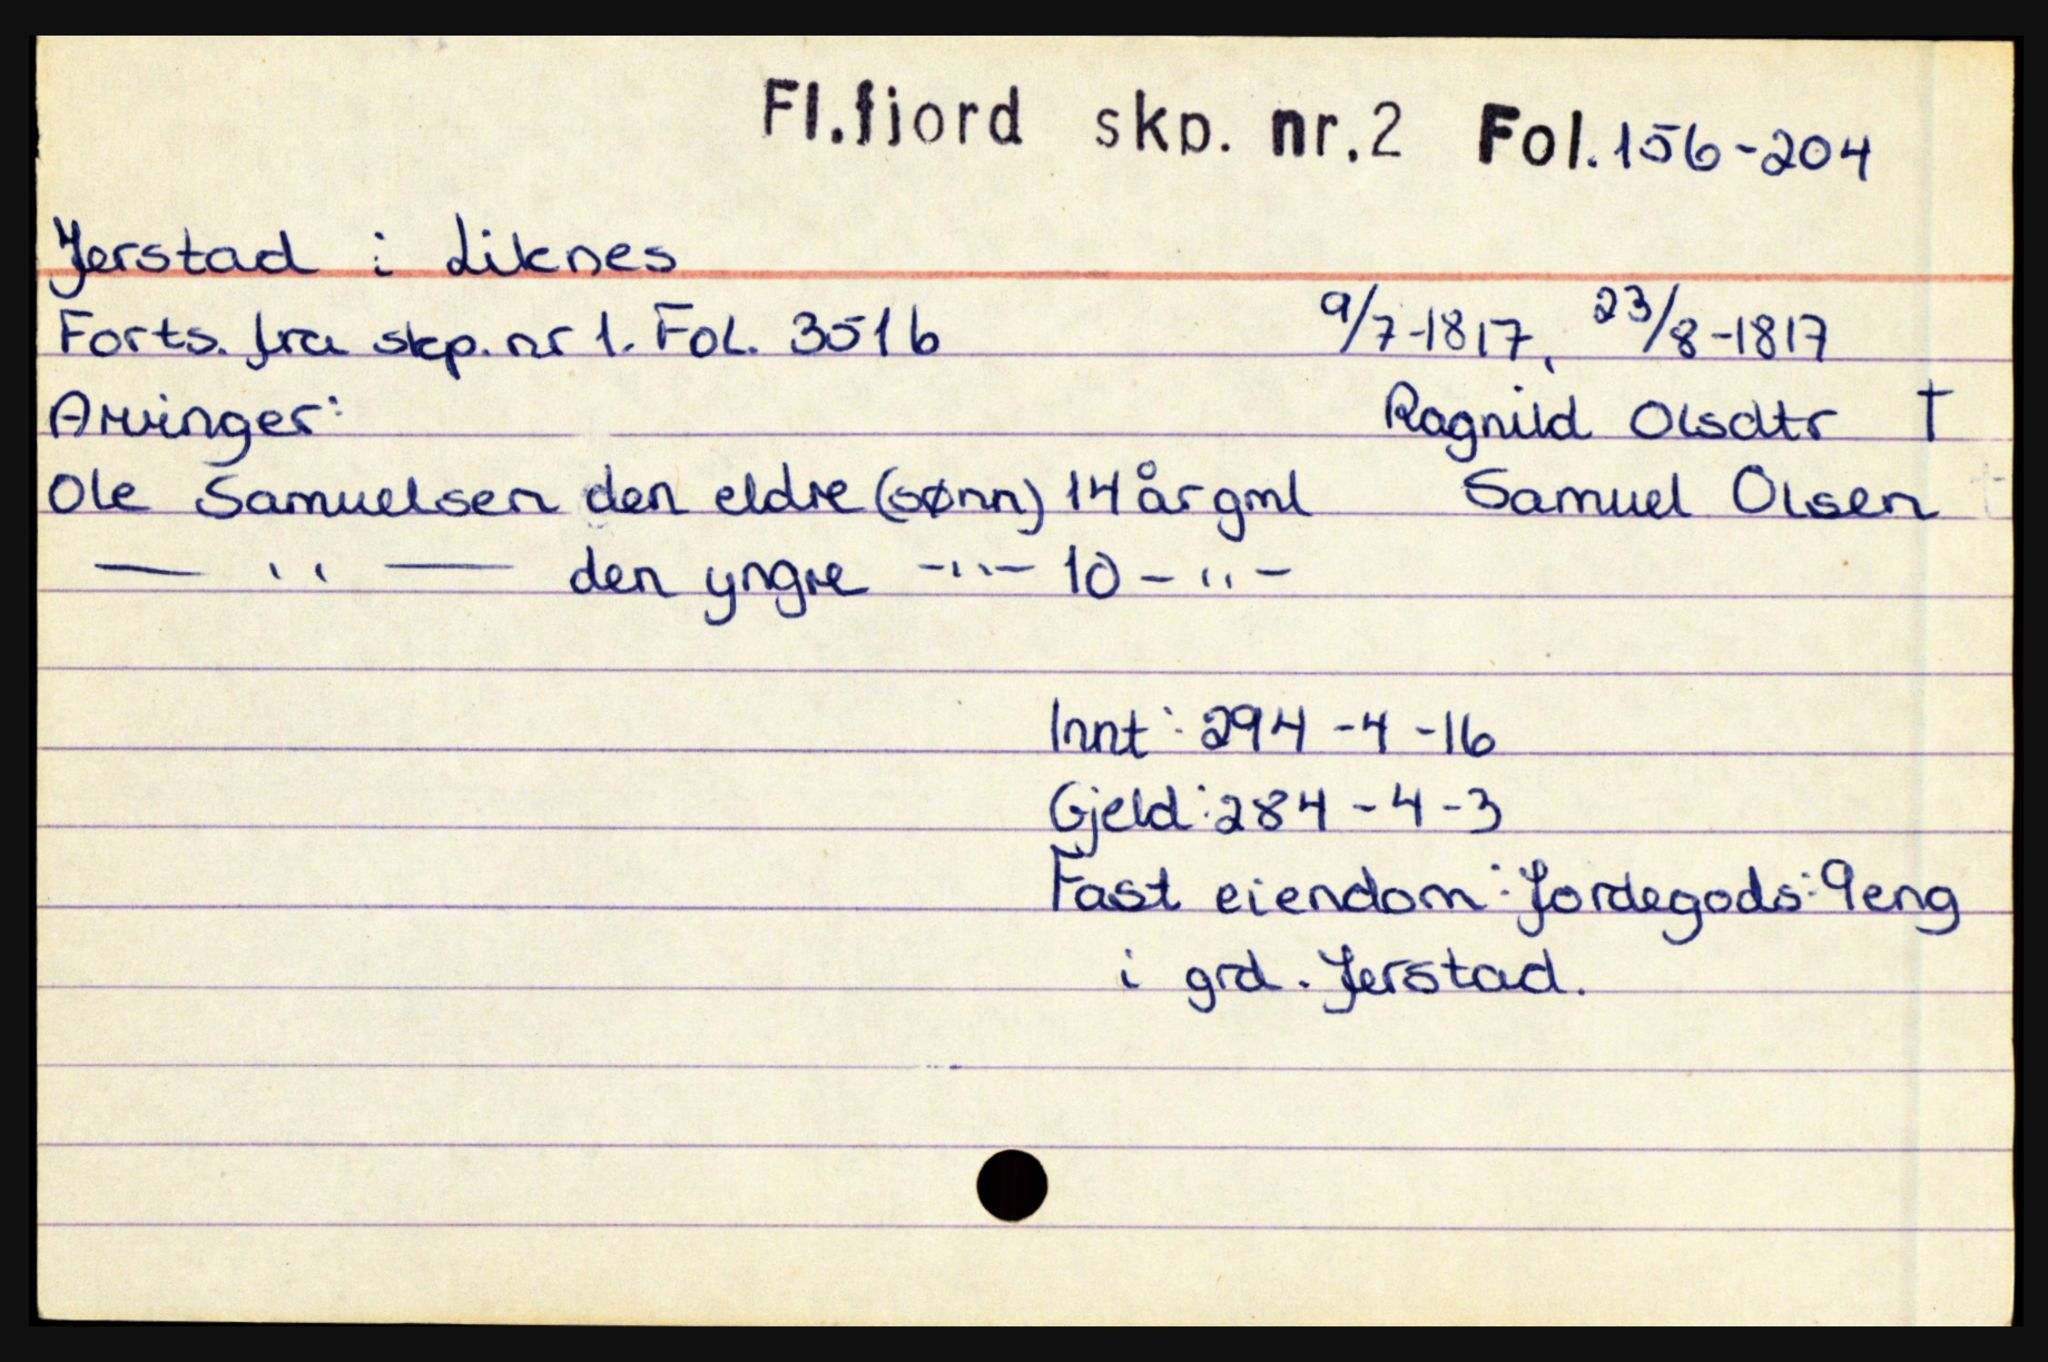 Fl.fjord skp. nr.2 Fol.156-204
Jerstad i Liknes
Forts. fra skp. nr 1. Fol. 351b 9/7-1817, 23/8-1817
Arvinger: Ragnild Olsdtr †
Ole Samuelsen den eldre (sønn) 14 år gml Samuel Olsen
— " — den yngre -"- 10 -"-
Innt: 294-4-16
Gjeld: 284-4-3
Fast eiendom: Jordegods: 9eng
i grd. Jerstad.